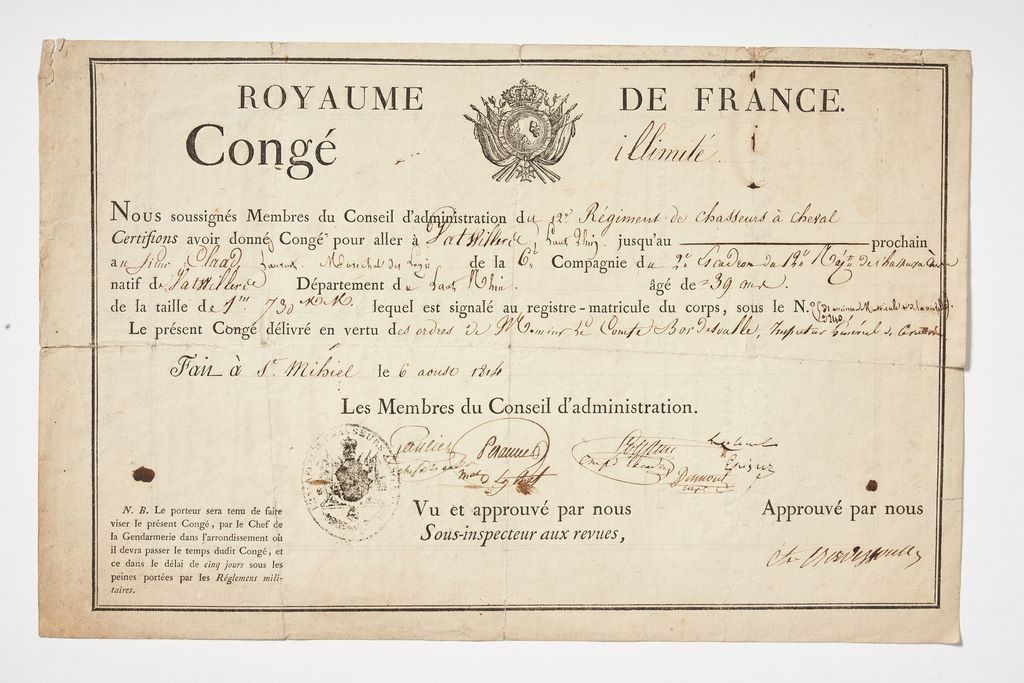 ROYAUME DE FRANCE.
Congé illimité.
Nous soussignés Membres du Conseil d'administration du 12e Régiment de chasseurs à cheval
Certifions avoir donné Congé pour aller à haut Rhin, jusqu'au prochain
au Sieur de la 6e Compagnie du 2e Escadron du 12e Régt de chasseurs
natif de Département du haut Rhin. âgé de 39 ans
de la taille de 1m 730 M.M. lequel est signalé au registre-matricule du corps, sous le N.o
Le présent Congé délivré en vertu des ordres de Monsieur Le Comte Bordesoulle, Inspecteur Général de Cavalerie
Fait à St. Mihiel le 6 aoust 1814
Les Membres du Conseil d'administration.
CHASSEURS
Vu et approuvé par nous
Sous-inspecteur aux revues,
Approuvé par nous
N. B. Le porteur sera tenu de faire
viser le présent Congé, par le Chef de
la Gendarmerie dans l'arrondissement où
il devra passer le temps dudit Congé, et
ce dans le délai de cinq jours sous les
peines portées par les Réglemens mili-
taires.